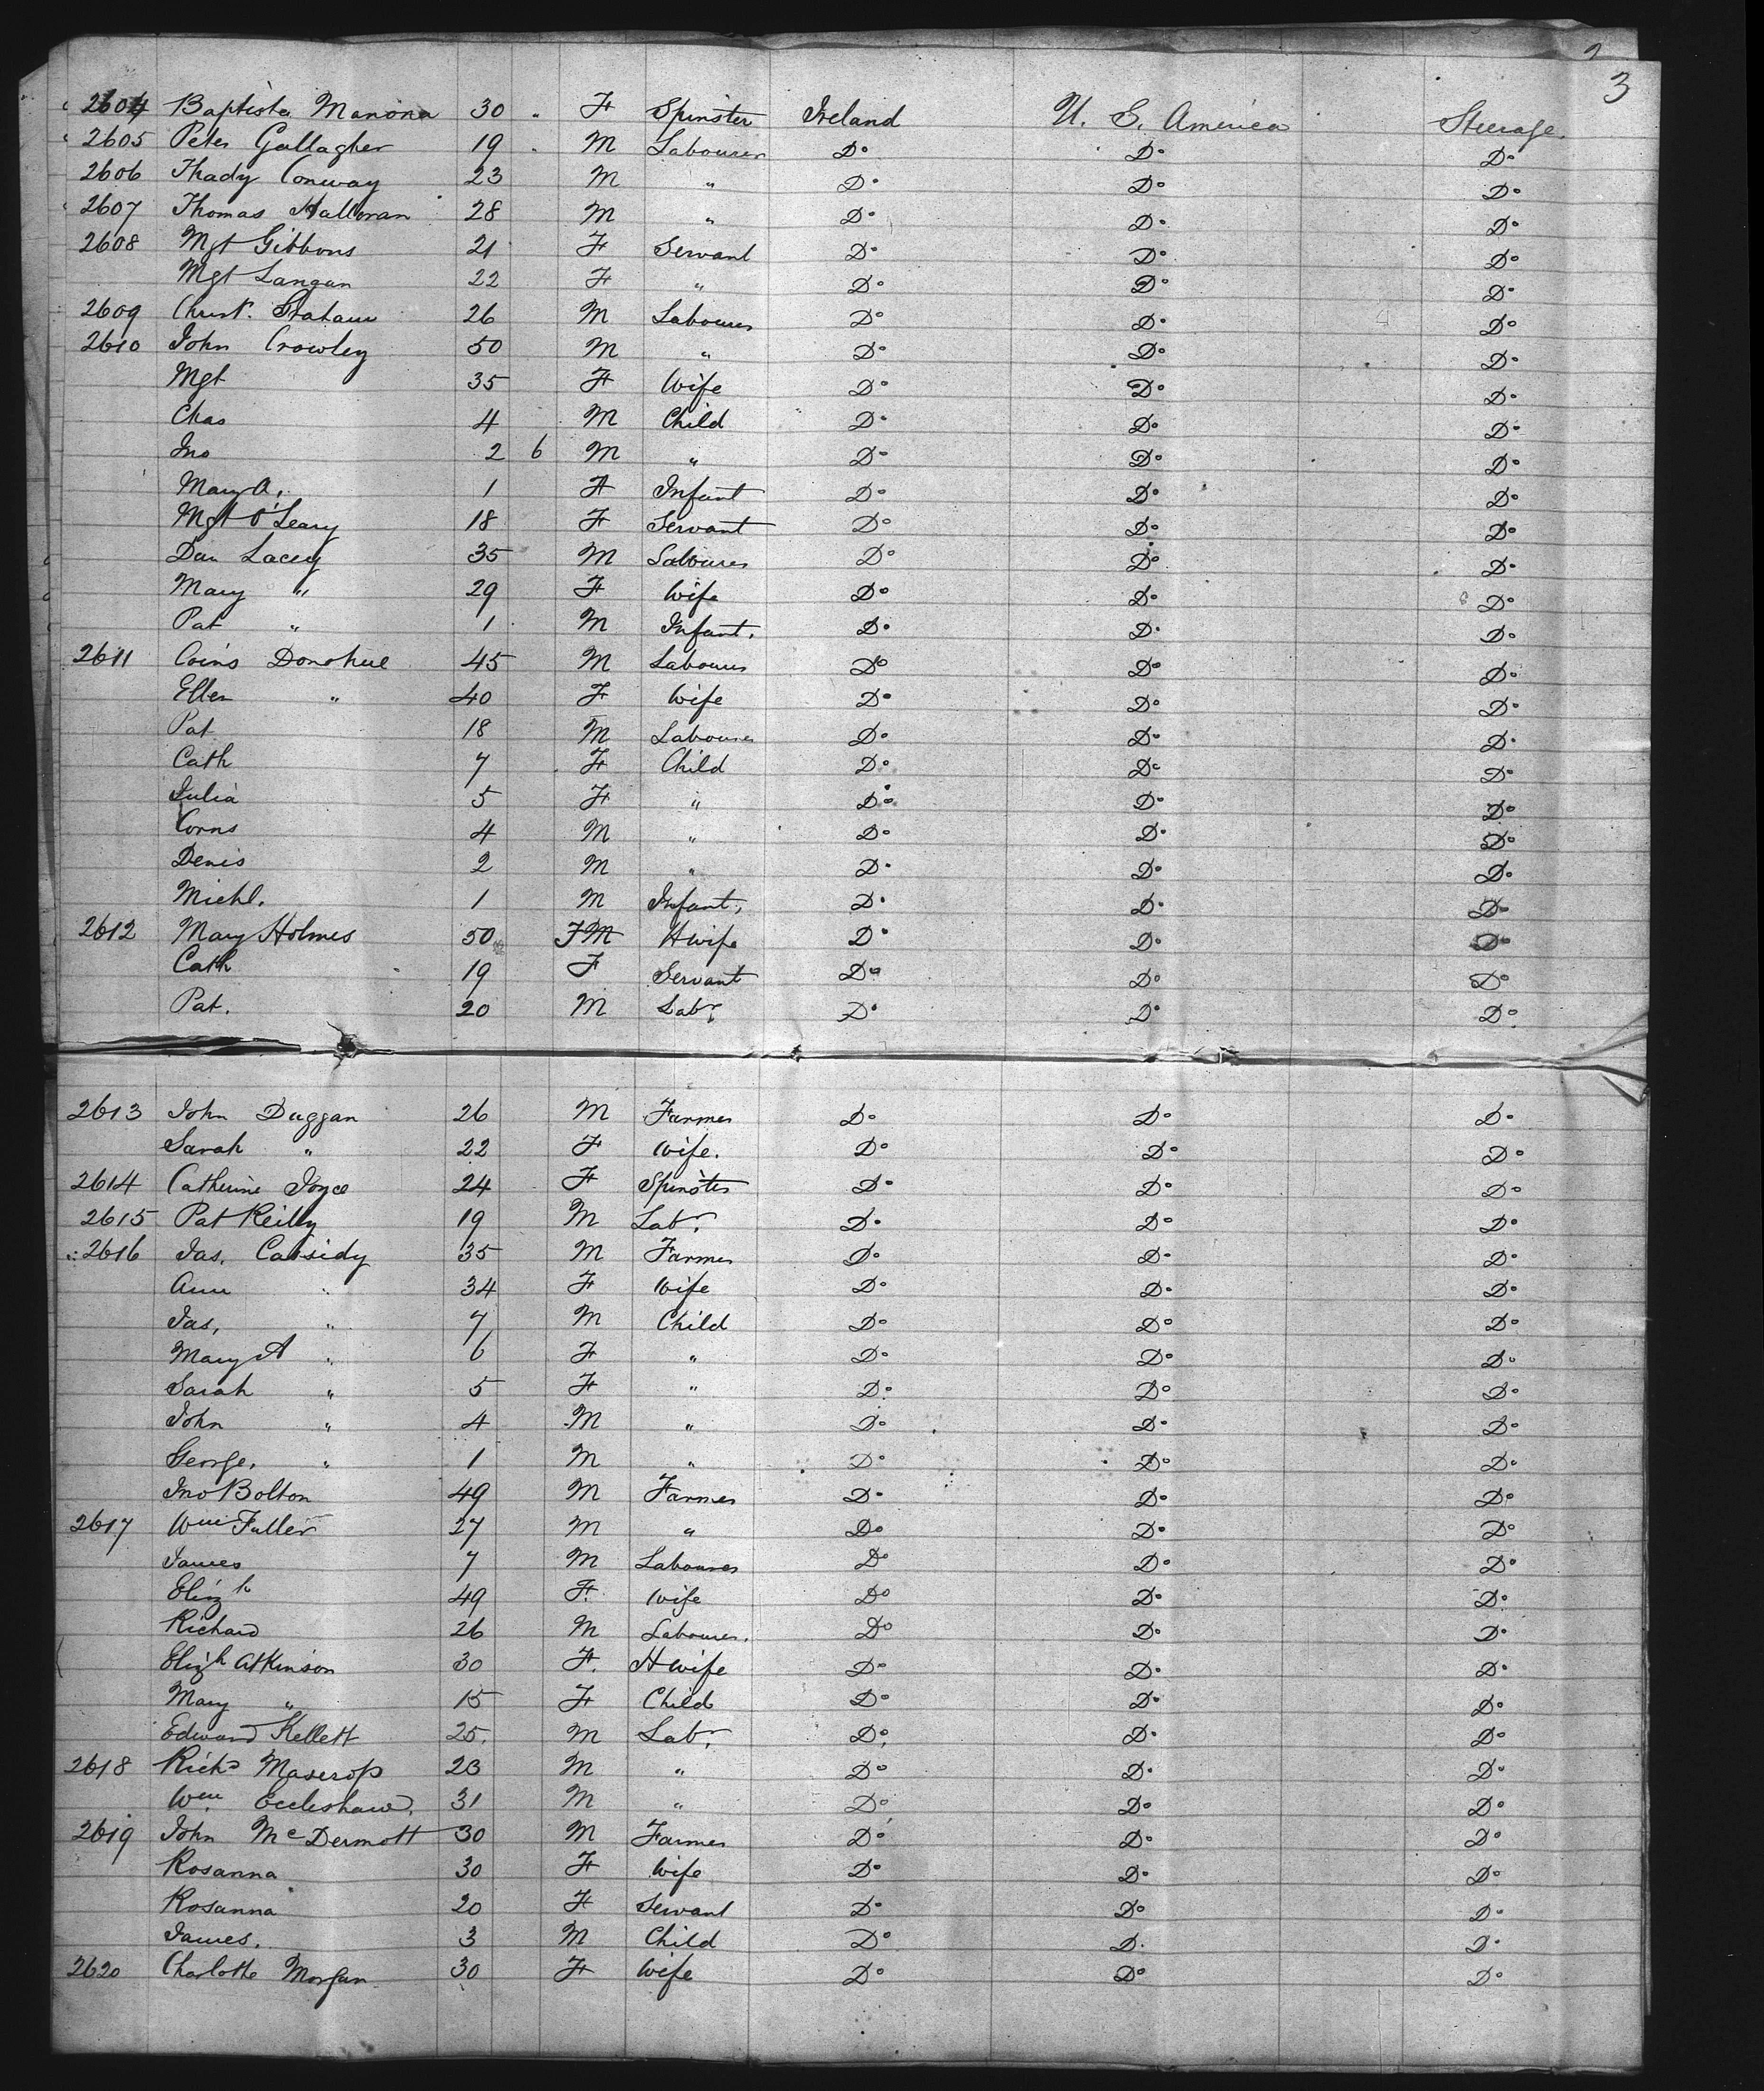 2
3
2604 Baptista Manona 30 " F Spinster Ireland U. S. America Steerage
2605 Peter Gallagher 19 " M Labourer Do Do Do
2606 Thady Conway 23 M " Do Do Do
2607 Thomas Halloran 28 M " Do Do Do
2608 Mgt Gibbons 21 F Servant Do Do Do
Mgt Langan 22 F " Do Do Do
2609 Christ. Graham 26 M Labourer Do Do Do
2610 John Crowley 50 M " Do Do Do
Mgt 35 F Wife Do Do Do
Chas 4 M Child Do Do Do
Jno 2 6 M " Do Do Do
Mary A. 1 F Infant Do Do Do
Mgt O'Leary 18 F Servant Do Do Do
Dan Lacey 35 M Labourer Do Do Do
Mary " 29 F Wife Do Do Do
Pat " 1 M Infant. Do Do Do
2611 Corns Donohue 45 M Labourer Do Do Do
Ellen " 40 F Wife Do Do Do
Pat 18 M Labourer Do Do Do
Cath 7 F Child Do Do Do
Julia 5 F " Do Do Do
Corns 4 M " Do Do Do
Denis 2 M " Do Do Do
Michl. 1 M Infant, Do Do Do
2612 Mary Holmes 50 F M H wife Do Do Do
Cath 19 F Servant Do Do Do
Pat. 20 M Labr. Do Do Do
2613 John Duggan 26 M Farmer Do Do Do
Sarah " 22 F Wife. Do Do Do
2614 Catherine Joyce 24 F Spinster Do Do Do
2615 Pat Reilly 19 M Labr. Do Do Do
2616 Jas. Cassidy 35 M Farmer Do Do Do
Ann " 34 F Wife Do Do Do
Jas, " 7 M Child Do Do Do
Mary A " 6 F " Do Do Do
Sarah " 5 F " Do Do Do
John " 4 M " Do Do Do
George, " 1 M " Do Do Do
Jno Bolton 49 M Farmer Do Do Do
2617 Wm Fuller 27 M " Do Do Do
James 7 M Labourer Do Do Do
Elizh 49 F. Wife Do Do Do
Richard 26 M Labourer. Do Do Do
Elizh Atkinson 30 F. H wife Do Do Do
Mary " 15 F Child Do Do Do
Edward Kellett 25. M Labr. Do Do Do
2618 Richd 23 M " Do Do Do
Wm Eccleshaw. 31 M " Do Do Do
2619 John McDermott 30 M Farmer Do Do Do
Rosanna 30 F Wife Do Do Do
Rosanna 20 F Servant Do Do Do
James. 3 M Child Do Do Do
2620 Charlotte Morgan 30 F Wife Do Do Do